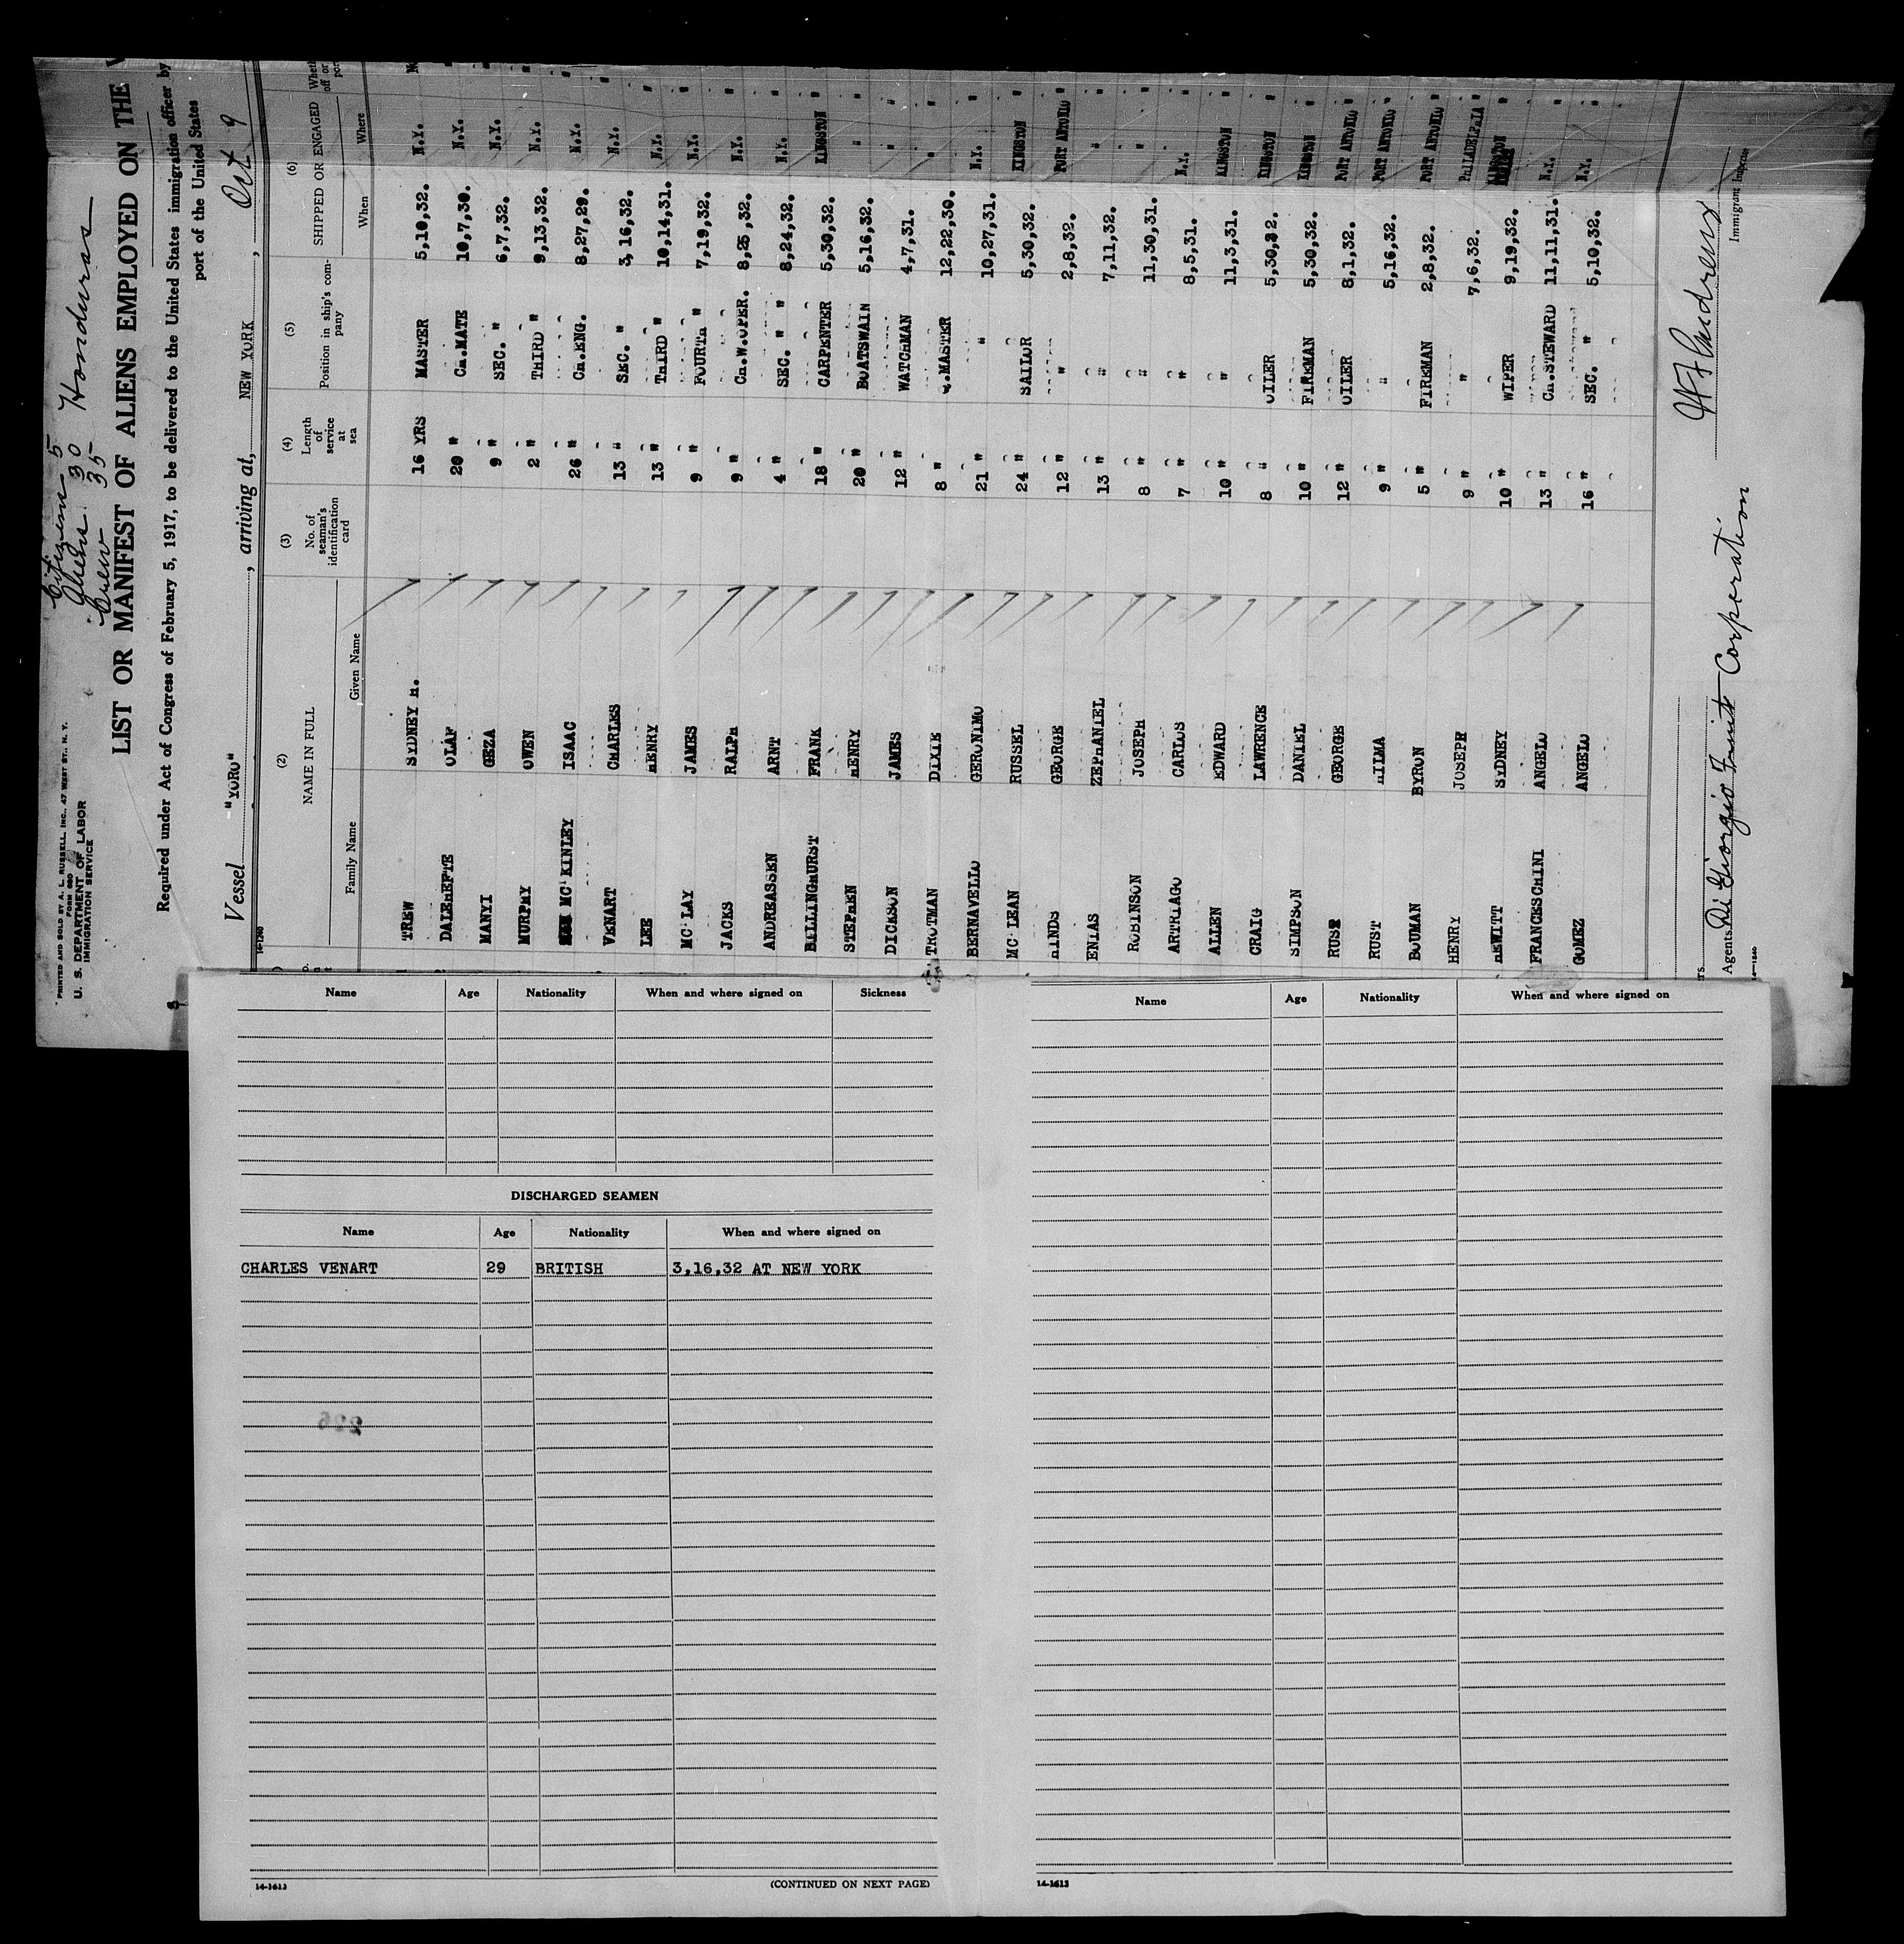 Citizens 5
Aliens 30
Crew 35
Honduras
PRINTED AND SOLD BY A. L. RUSSELL, INC., 47 WEST ST., N. Y.
FORM 680
U. S. DEPARTMENT OF LABOR
IMMIGRATION SERVICE
LIST OR MANIFEST OF ALIENS EMPLOYED ON THE
Required under Act of Congress of February 5, 1917, to be delivered to the United States immigration officer by
port of the United States
Vessel "YORO", arriving at, NEW YORK, Oct 9
14-1240
(2) (3) (4) (5) (6)
NAME IN FULL No. of seaman's identification card Length of service at sea Position in ship's company SHIPPED OR ENGAGED
Family Name Given Name When Where
TREW SYDNEY H. 16 YRS MASTER 5,10,32. N.Y.
DALEHEFTE OLAF 20 " CH.MATE 10,7,30. N.Y.
MANYI GEZA 9 " SEC. " 6,7,32. N.Y.
MURPHY OWEN 2 " THIRD " 9,13,32. N.Y.
MC KINLEY ISAAC 26 " CH.ENG. 8,27,29. N.Y.
VENART CHARLES 13 " SEC. " 3,16,32. N.Y.
LEE HENRY 13 " THIRD " 10,14,31. N.Y.
MC LAY JAMES 9 " FOURTH " 7,19,32. N.Y.
JACKS RALPH 9 " CH.W.OPER. 8,25,32. N.Y.
ANDREASSEN ARNT 4 " SEC. " " 8,24,32. N.Y.
BILLINGHURST FRANK 18 " CARPENTER 5,30,32. KINGSTON
STEPHEN HENRY 20 " BOATSWAIN 5,16,32. "
DICKSON JAMES 12 " WATCHMAN 4,7,31. "
TROTMAN DIXIE 8 " Q.MASTER 12,22,30. "
BERNAVELLO GERONIMO 21 " " 10,27,31. N.Y.
MC LEAN RUSSEL 24 " SAILOR 5,30,32. KINGSTON
HINDS GEORGE 12 " " 2,8,32. PORT ANTONIO
ENIAS ZEPHANIEL 13 " " 7,11,32. "
ROBINSON JOSEPH 8 " " 11,30,31. "
ARTRIAGO CARLOS 7 " " 8,5,31. N.Y.
ALLEN EDWARD 10 " " 11,3,31. KINGSTON
CRAIG LAWRENCE 8 " OILER 5,30,32. KINGSTON
SIMPSON DANIEL 10 " FIREMAN 5,30,32. KINGSTON
RUSE GEORGE 12 " OILER 8,1,32. PORT ANTONIO
RUST HILMA 9 " " 5,16,32. PORT ANTONIO
BOUMAN BYRON 5 " FIREMAN 2,8,32. PORT ANTONIO
HENRY JOSEPH 9 " " 7,6,32. PHILADELPHIA
HEWITT SYDNEY 10 " WIPER 9,19,32. KINGSTON
FRANCESCHINI ANGELO 13 " CH.STEWARD 11,11,31. N.Y.
GOMEZ ANGELO 16 " SEC. " 5,10,32. N.Y.
Agents Di Giorgio Fruit Corporation
Immigrant Inspector
Name Age Nationality When and where signed on Sickness
DISCHARGED SEAMEN
Name Age Nationality When and where signed on
CHARLES VENART 29 BRITISH 3,16,32 AT NEW YORK
14-1613 (CONTINUED ON NEXT PAGE)
Name Age Nationality When and where signed on
14-1613